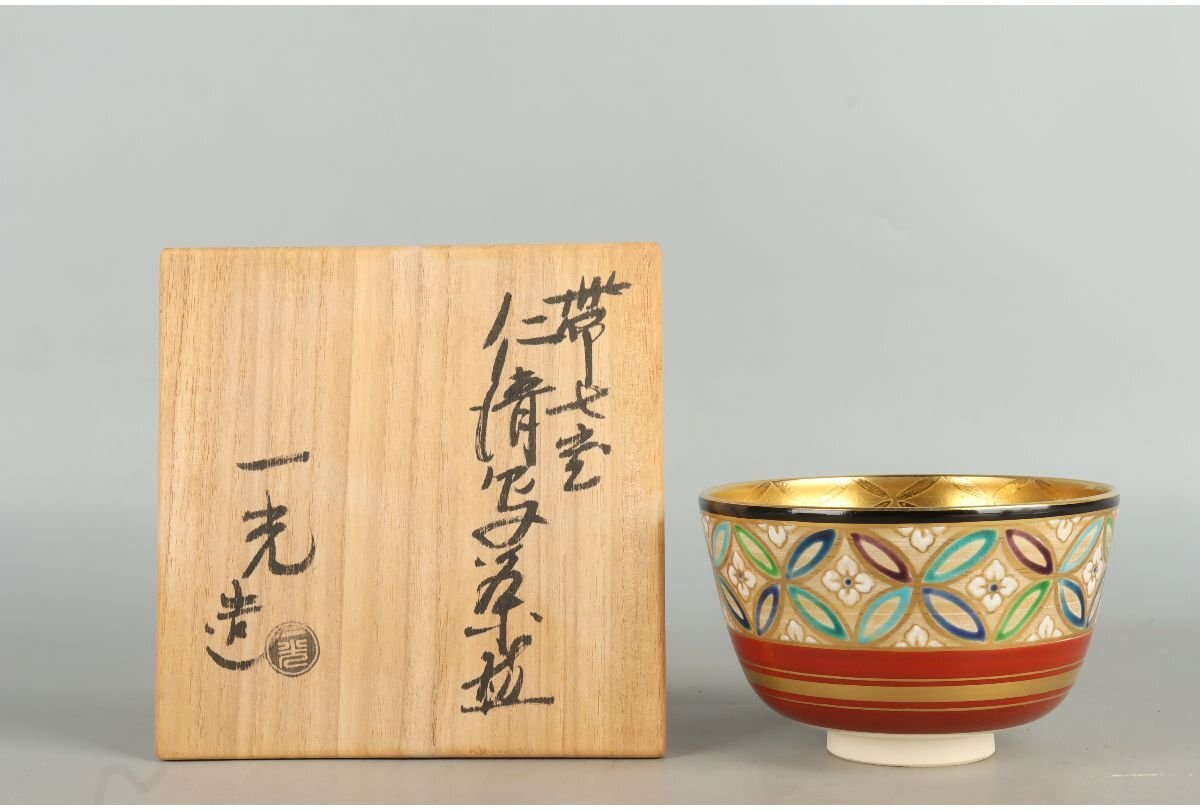 帯七宝
仁清写茶碗
一光造